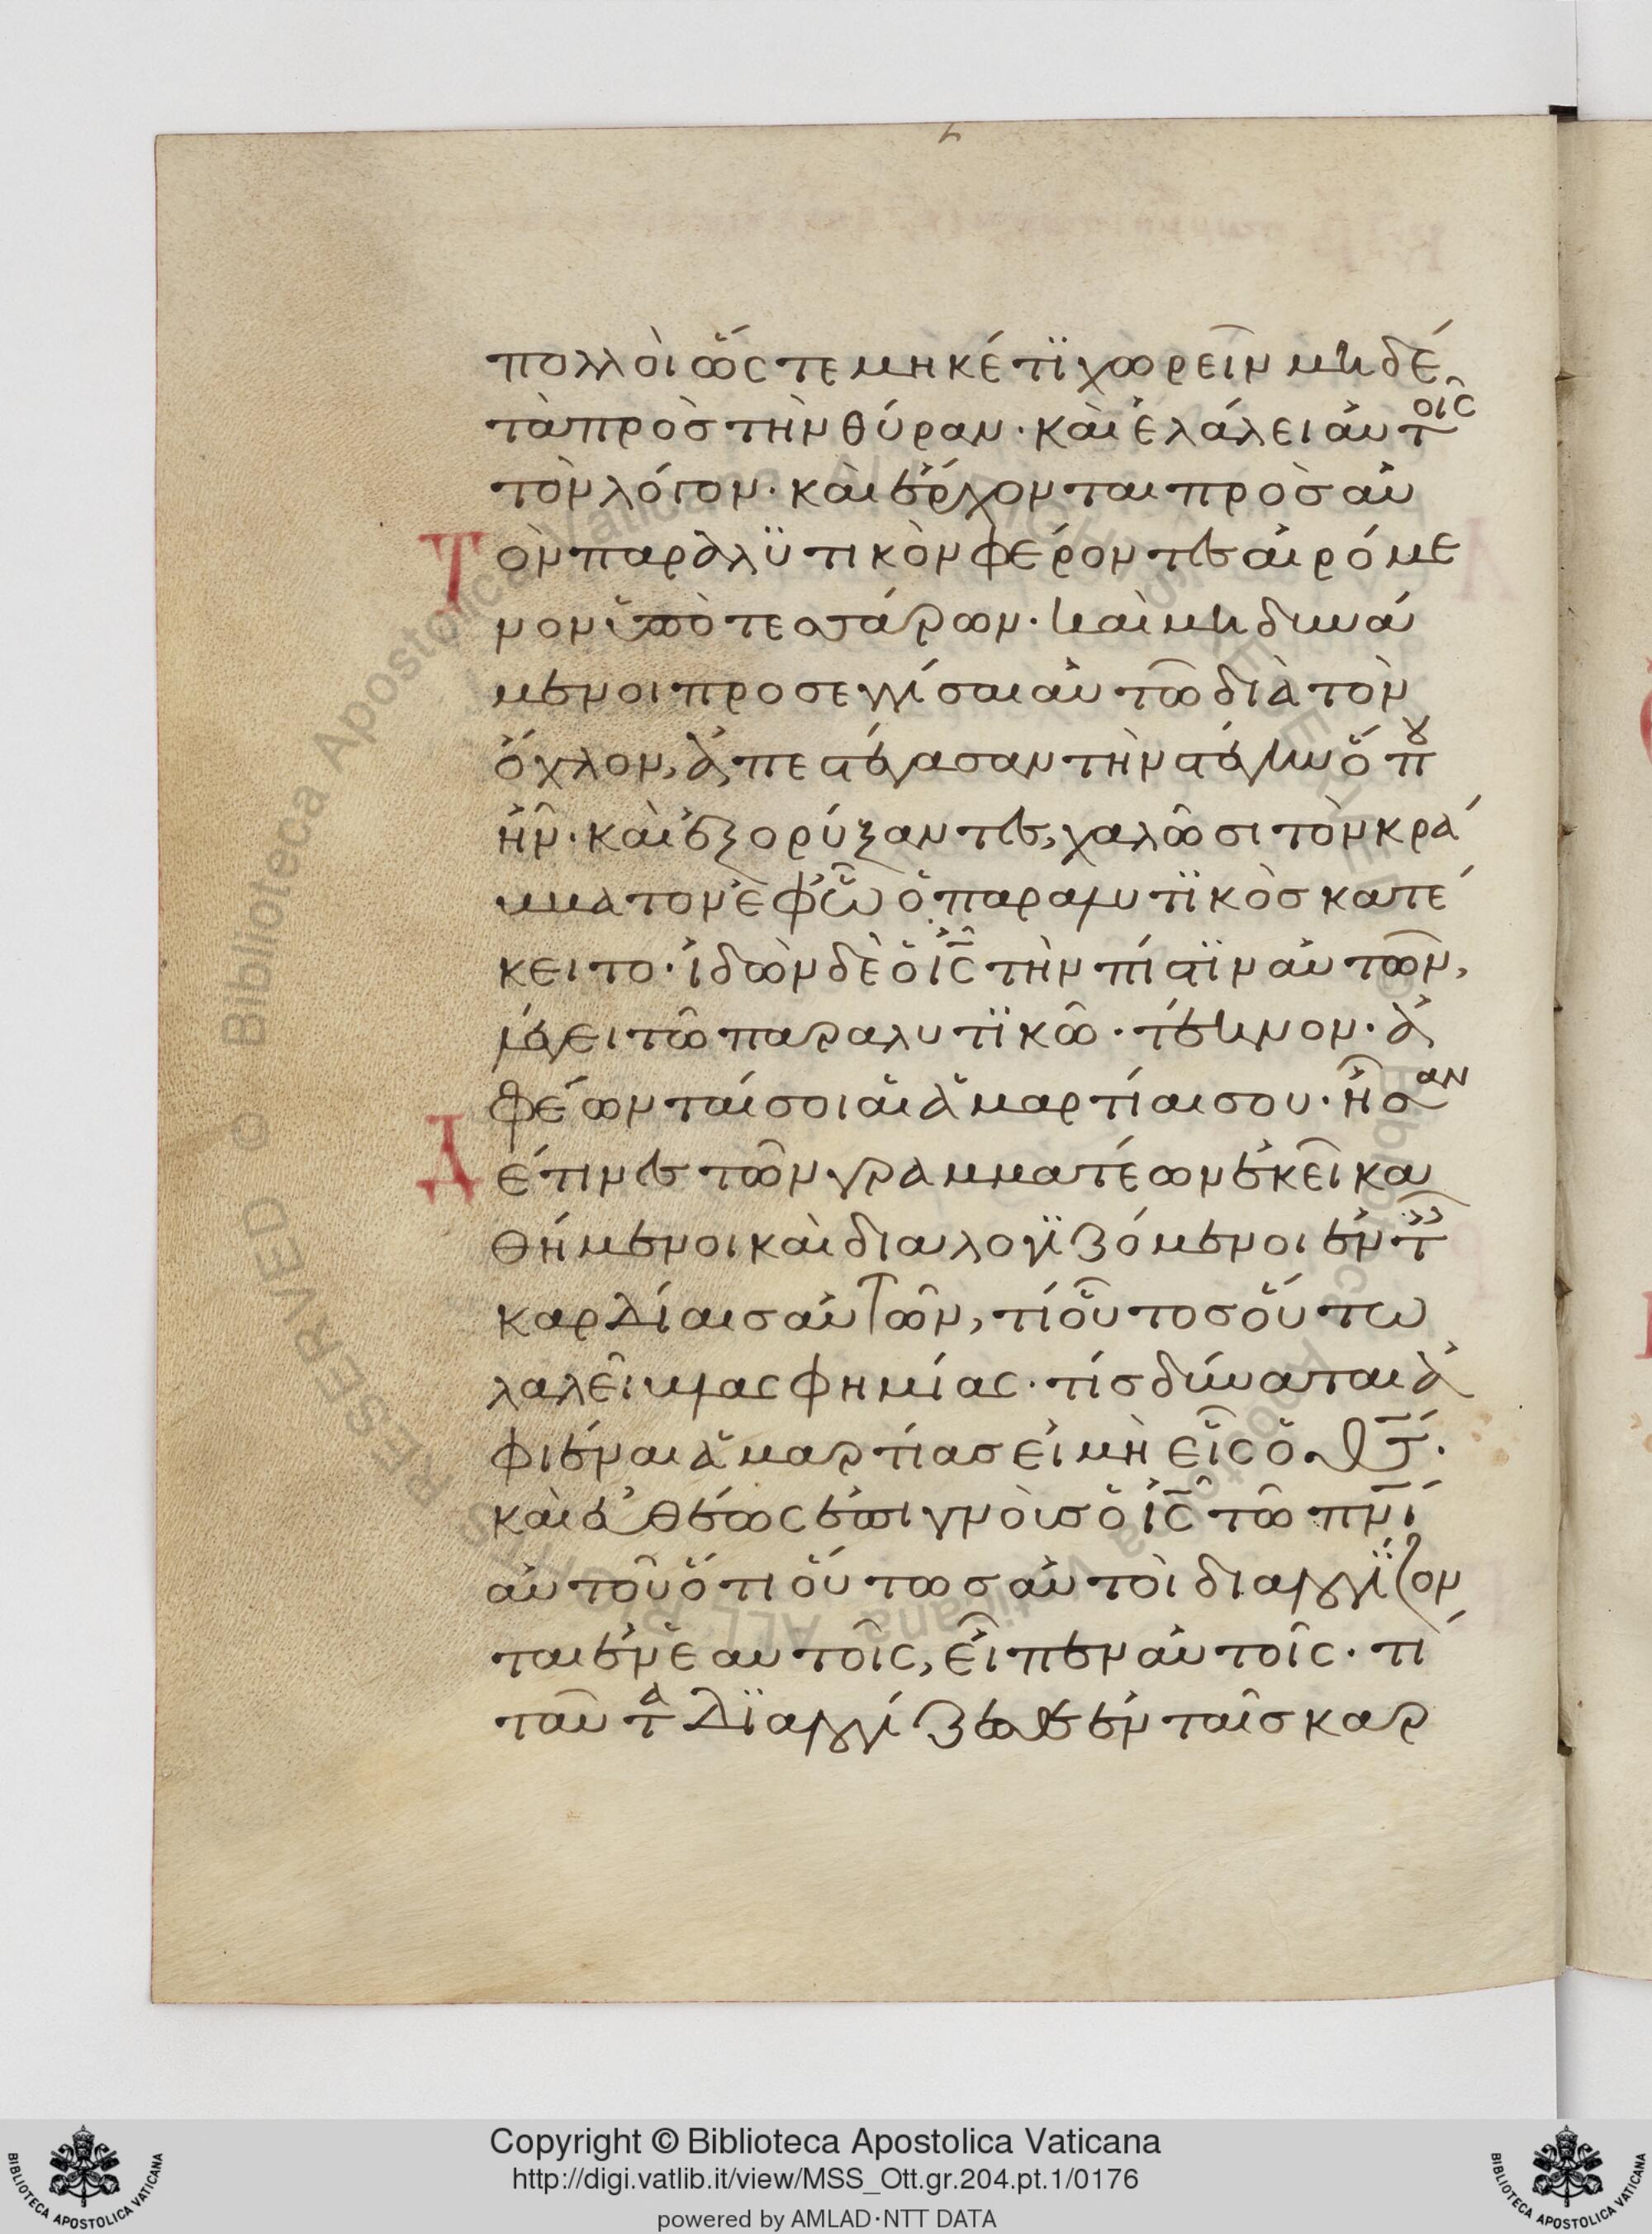 πολλοὶ ὥστε μηκέτϊ χωρεῖν μηδέ
τὰ πρὸς τὴν θύραν· καὶ ἐλάλει αὐτοῖς
τὸν λόγον· καὶ ἔρχονται πρὸς αὐ
Τὸν παραλϋτικὸν φέροντες αἰρόμε
νον ὑπὸ τεσσάρων· καὶ μὴ δυνά
μενοι προσεγγίσαι αὐτῶ διὰ τὸν
ὄχλον, ἀπεστέγασαν τὴν στέγην ὅπου
ἦν· καὶ ἐξορύξαντες, χαλῶσι τὸν κρά
ββατον ἐφ' ᾧ ὁ παραλυτϊκὸς κατέ
κειτο· ἰδὼν δὲ ὁ ἰς̅ τὴν πίστϊν αὐτῶν,
λέγει τῶ παραλυτϊκῶ· τέκνον· ἀ
φέωνταί σοι αἱ ἁμαρτίαι σου· ἦσαν
Δέ τινες τῶν γραμματέων ἐκεῖ κα
θήμενοι καὶ διαλογϊζόμενοι ἐν τ̅
καρδίαις αὐτῶν, τί οὗτος οὕτω
λαλεῖ βλασφημίας· τίς δύναται ἀ
φιέναι ἁμαρτίας εἰ μὴ εἷς ὁ θς̅·
καὶ εὐθέως ἐπιγνοὺς ὁ ἰς̅ τῶ πνι̅
αὐτοῦ ὅτι οὕτως αὐτοὶ διαλογϊζον
ται ἐν ἑαυτοῖς, εἶπεν αὐτοῖς· τί
ταῦτα διαλογίζεσθε ἐν ταῖς καρ
Copyright © Biblioteca Apostolica Vaticana
http://digi.vatlib.it/view/MSS_Ott.gr.204.pt.1/0176
powered by AMLAD·NTT DATA
BIBLIOTECA APOSTOLICA VATICANA
BIBLIOTECA APOSTOLICA VATICANA